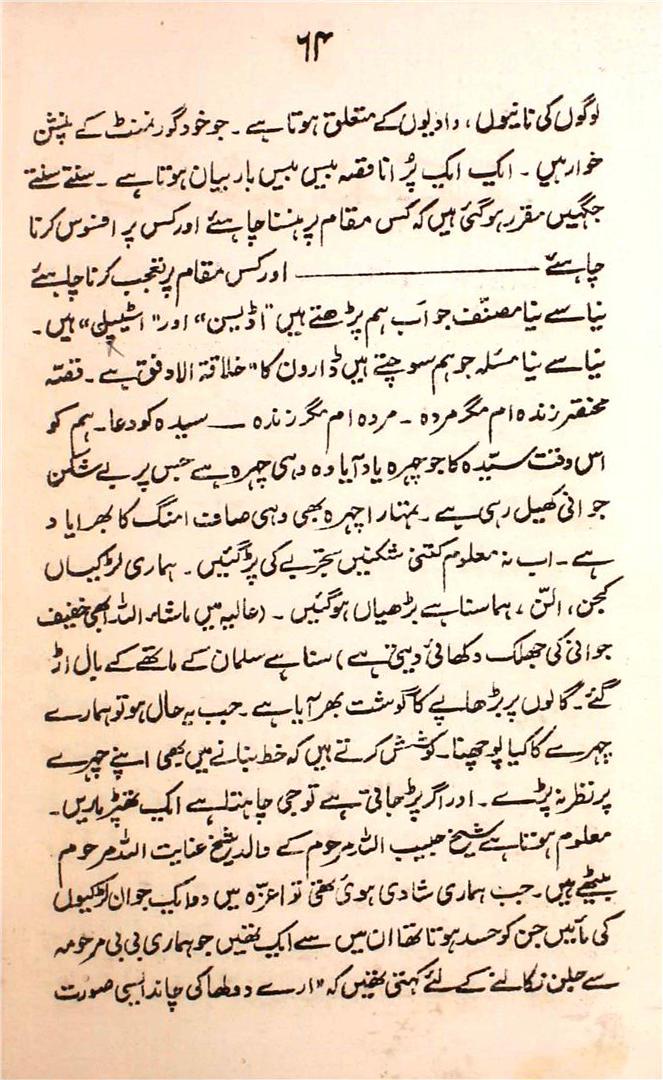 ۶۴
لوگوں کی نانیوں، دادیوں کے متعلق ہوتا ہے ۔ جو خود گورنمنٹ کے پنشن
خوار ہیں ۔ ایک ایک پُرانا قصہ بیس بیس بار بیان ہوتا ہے ۔ سنتے سنتے
جگہیں مقرر ہوگئی ہیں کہ کس مقام پر ہنسنا چاہئے اور کس پر افسوس کرنا
چاہئے ——————— اور کس مقام پر تعجب کرنا چاہئے
نیا سے نیا مصنّف جو اَب ہم پڑھتے ہیں "اڈیسن" اور "اسٹیل" ہیں ۔
نیا سے نیا مسئلہ جو ہم سوچتے ہیں ڈارون کا "خلاقۃ الاوفق ہے ۔ قصّہ
مختصر زندہ ام مگر مردہ ۔ مردہ ام مگر زندہ — سیدہ کو دعا۔ ہم کو
اس وقت سیّدہ کا جو چہرہ یاد آیا وہ وہی چہرہ ہے جس پر بے شکن
جوانی کھیل رہی ہے ۔ تمہارا چہرہ بھی وہی صاف امنگ کا بھرا یاد
ہے ۔ اب نہ معلوم کتنی شکنیں تجربے کی پڑ گئیں ۔ ہماری لڑکیاں
کجن، الّن، ہما سنا ہے بڑھیاں ہوگئیں ۔ (عالیہ میں ماشاء اللہ ابھی خفیف
جوانی کی جھلک دکھائی دیتی ہے) سنا ہے سلمان کے ماتھے کے بال اڑ
گئے ۔ گالوں پر بڑھاپے کا گوشت بھر آیا ہے ۔ جب یہ حال ہو تو ہمارے
چہرے کا کیا پوچھنا ۔ کوشش کرتے ہیں کہ خط بنانے میں بھی اپنے چہرے
پر نظر نہ پڑے ۔ اور اگر پڑ جاتی ہے تو جی چاہتا ہے ایک تھپڑ ماریں ۔
معلوم ہوتا ہے شیخ حبیب اللہ مرحوم کے والد شیخ عنایت اللہ مرحوم
بیٹھے ہیں ۔ جب ہماری شادی ہوئی تھی تو اعزّہ میں دو ایک جوان لڑکیوں
کی مائیں جن کو حسد ہوتا تھا ان میں سے ایک تھیں جو ہماری بی بی مرحومہ
سے جلن نکالنے کے لئے کہتی تھیں کہ "ارے دولھا کی چاند ایسی صورت